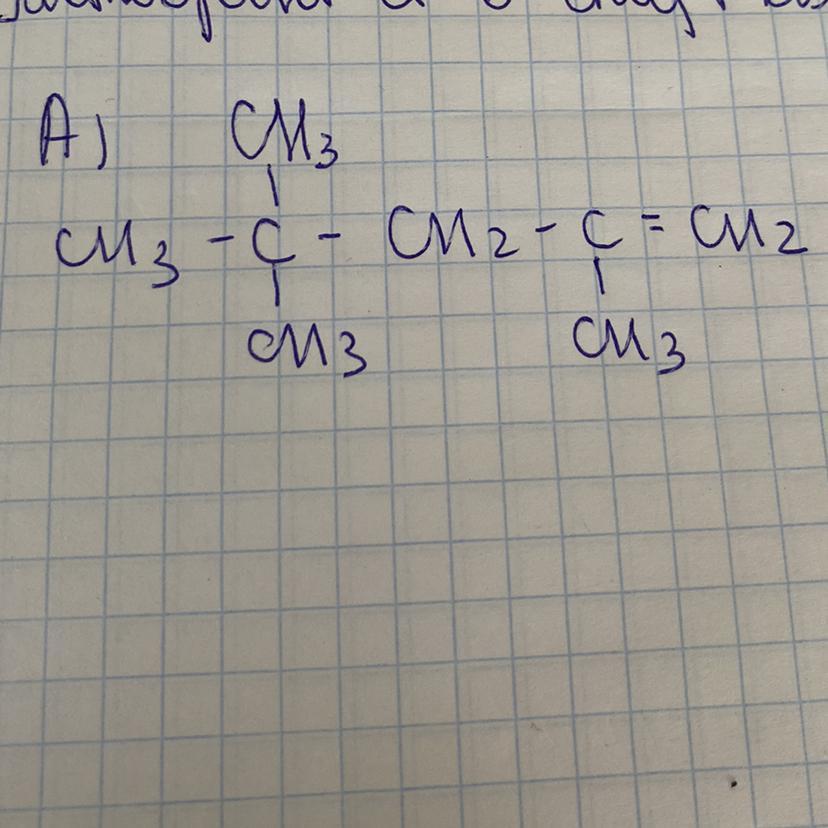 A) CH3
CH3 - C - CH2 - C = CH2
CH3 CH3